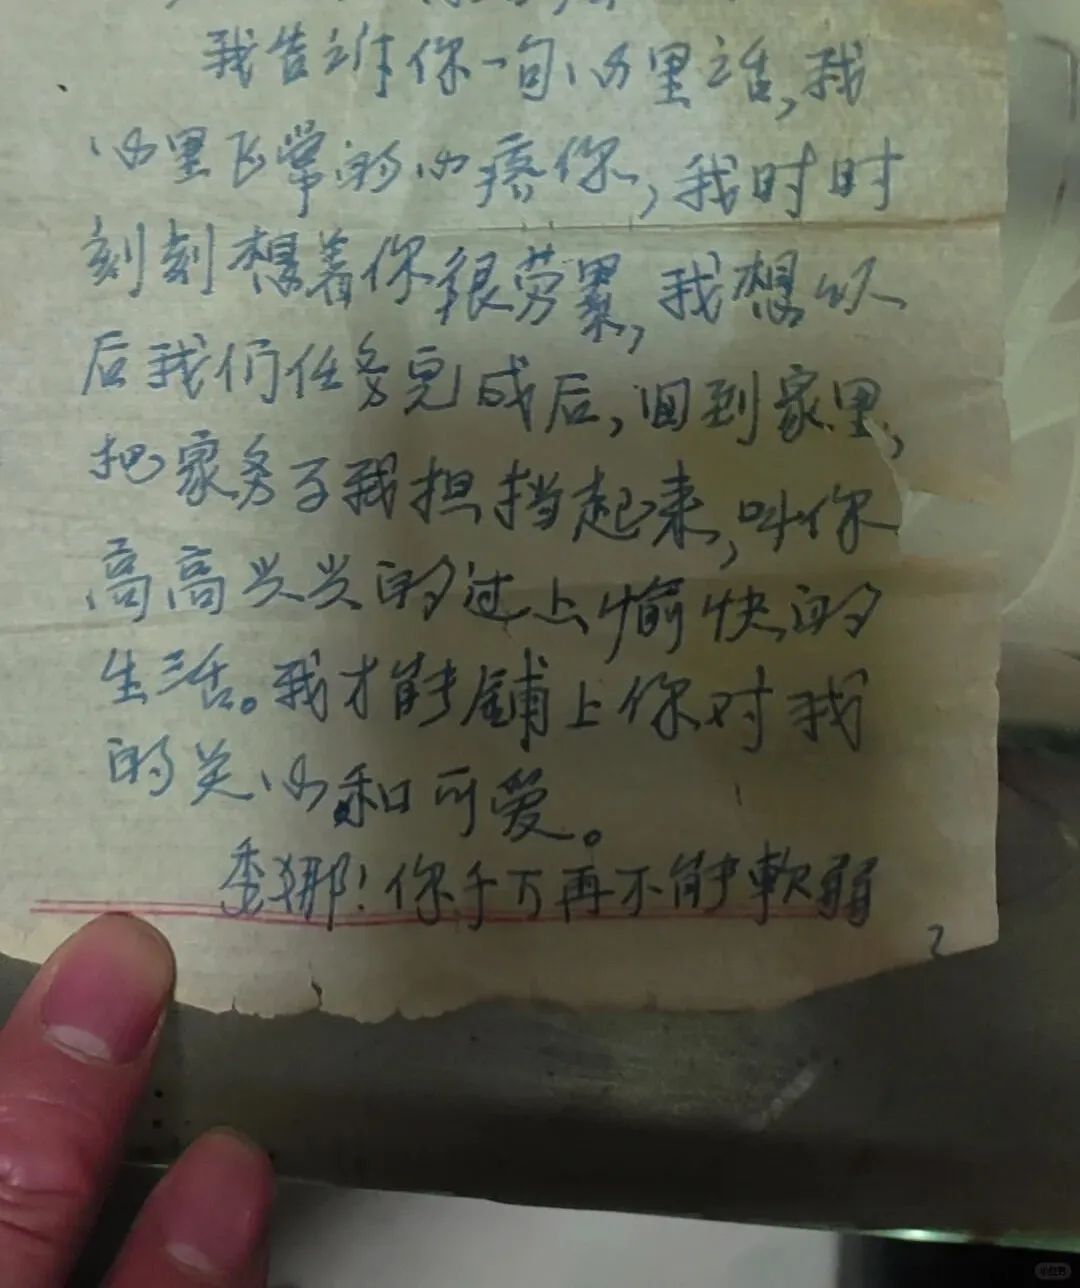 我告诉你一句心里话,我
心里飞常的心疼你,我时时
刻刻想着你很劳累,我想以
后我们任务完成后,回到家里,
把家务了我担挡起来,叫你
高高兴兴的过上愉快的
生活。我才能铺上你对我
的关心和可爱。
季娜!你千万再不能軟弱
2
小红书